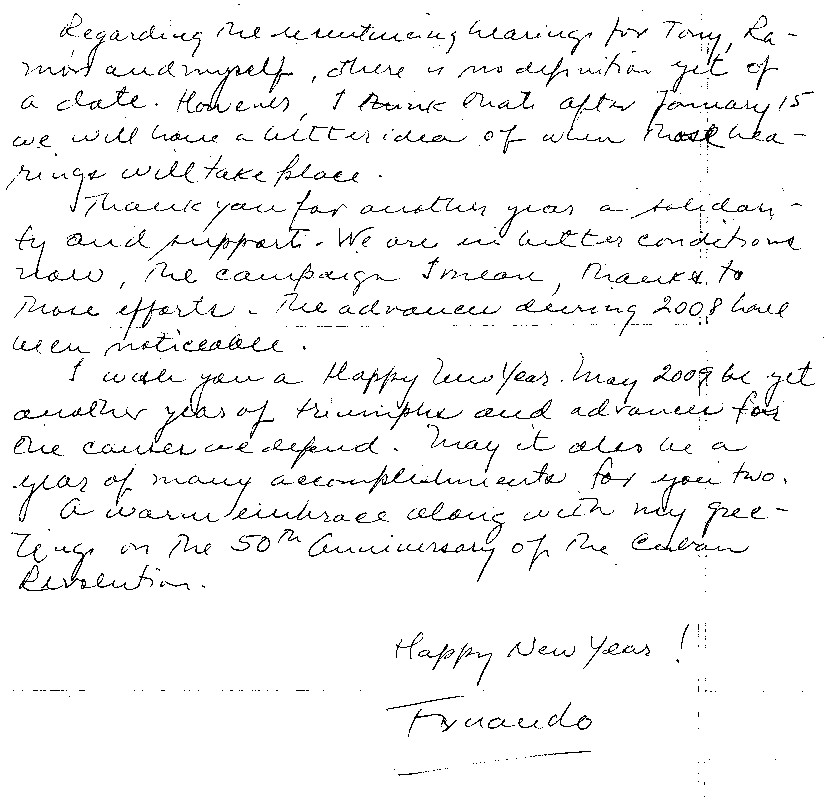 Regarding the resentencing hearings for Tony, Ra-
món and myself, there is no definition yet of
a date. However, I think that after January 15
we will have a better idea of when those hea-
rings will take place.
Thank you for another year a solidari-
ty and support. We are in better conditions
now, the campaign I mean, thanks to
those efforts. The advances during 2008 have
been noticeable.
I wish you a Happy New Year. May 2009 be yet
another year of triumphs and advances for
the causes we defend. May it also be a
year of many accomplishments for you two.
A warm embrace along with my gree-
tings on the 50th Anniversary of the Cuban
Revolution.
Happy New Year!
Fernando